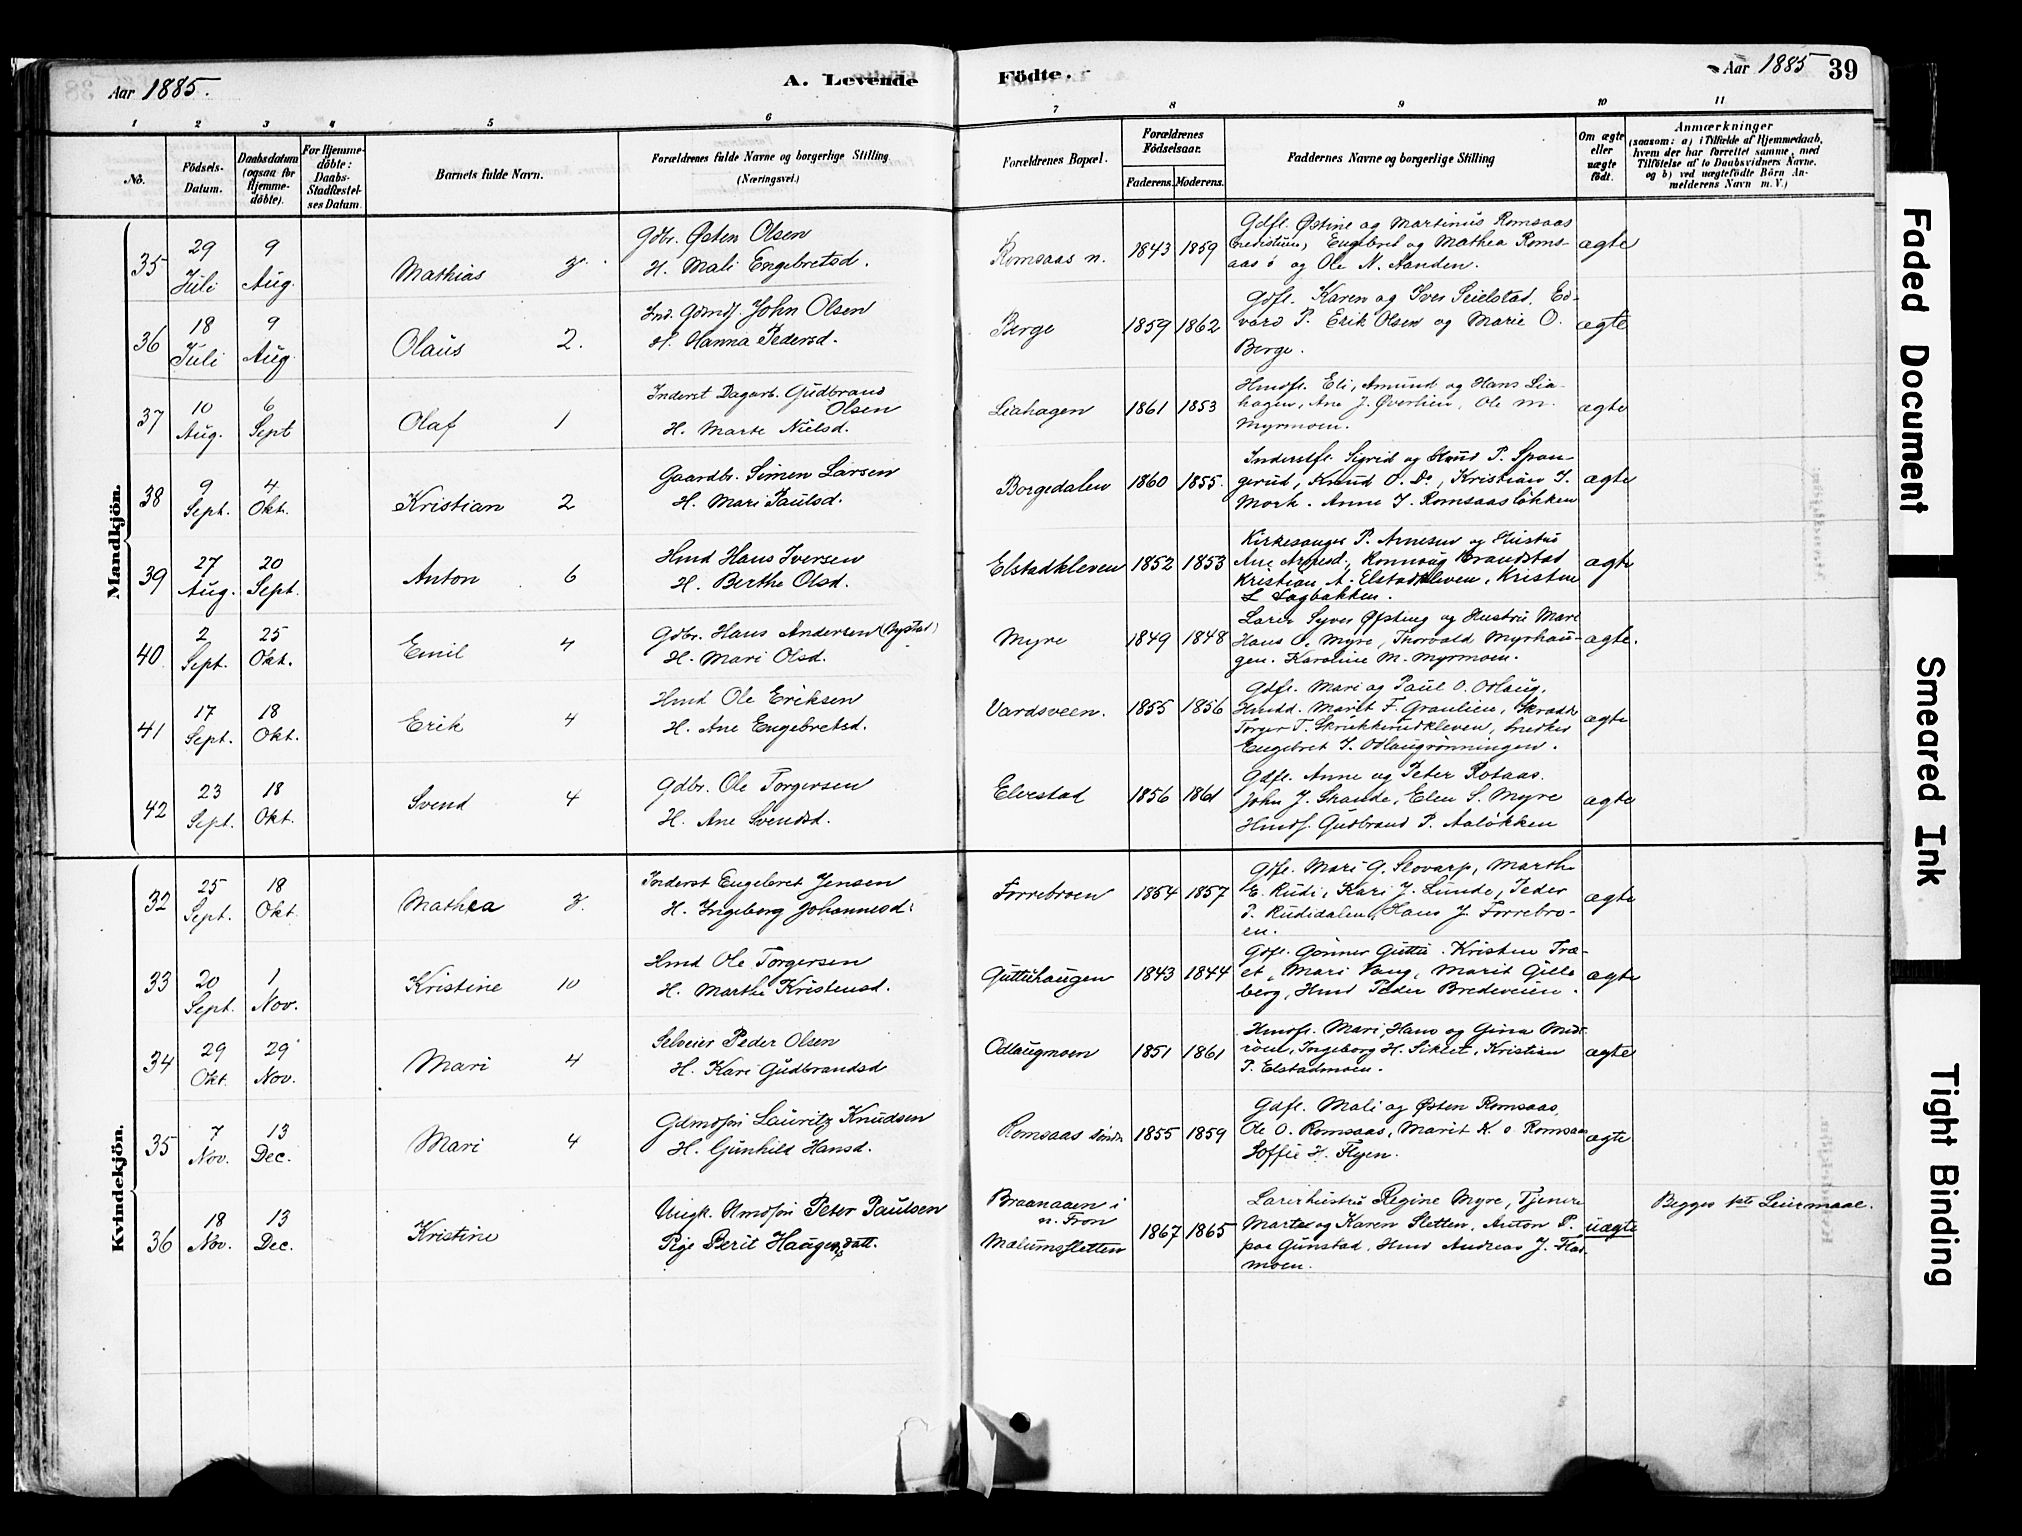 Aar 1885.
A. Levende
Födte.
Aar 1885
39
1 2 3 4 5 6 7 8 9 10 11
No.
Födsels-
Datum.
Daabsdatum
(ogsaa for
Hjemme-
döbte).
For Hjemme-
döbte:
Daabs-
Stadfæstel-
ses Datum.
Barnets fulde Navn.
Forældrenes fulde Navne og borgerlige Stilling
(Næringsvei.)
Forældrenes Bopæl.
Forældrenes
Födselsaar.
Faderens. Moderens.
Faddernes Navne og borgerlige Stilling
Om ægte
eller
uægte
födt.
Anmærkninger
(saasom: a) i Tilfælde af Hjemmedaab,
hvem der har forrettet samme, med
Tilföielse af to Daabsvidners Navne,
og b) ved uægtefödte Börn An-
melderens Navn m. V.)
Mandkjön.
35
29
Juli
9
Aug.
Mathias 3.
Gdbr. Østen Olsen
H. Mali Engebretsd.
Romsaas n.
1843 1859
Gdfl. Østine og Martinus Romsaas
nedistuen, Engebret og Mathea Roms-
aas ö og Ole N. Aanden.
ægte
36
18
Juli
9
Aug.
Olaus 2.
Ind. Gdmdf. John Olsen
H. Hanna Pedersd.
Berge
1859 1862
Gdfl. Karen og Iver Seielstad, Ed-
vard P. Erik Olsen og Marie O.
Berge.
ægte
37
10
Aug.
6
Sept
Olaf 1
Inderst Dagarb. Gudbrand
Olsen
H. Marte Nielsd.
Liahagen
1861 1853
Hmdfl. Eli, Amund og Hans Lia-
hagen, Ane J. Øverlien, Ole M.
Myrmoen.
ægte
38
9
Sept.
4
Okt.
Kristian 2
Gaardbr. Simen Larsen
H. Mari Paulsd.
Borgedalen
1860 1855.
Inderstfl. Sigrid og Knud P. Span-
gerud, Knud O. Do, Kristian J.
Mork. Anne J. Romsaasløkken
ægte
39
27
Aug.
20
Sept.
Anton 6
Hmd Hans Iversen
H. Berthe Olsd.
Elstadkleven
1852 1853
Kirkesanger P. Arnesen og Hustru
Ane Arnesd., Ronnaug Brandstad
Kristian A. Elstadkleven, Kristen
L Sagbakken.
ægte
40
2
Sept.
25
Okt.
Emil 4
Gdbr. Hans Andersen (Bystad)
H. Mari Olsd.
Myre
1849 1848
Lærer Syver Øfsteng og Hustru Mari
Hans O. Myre, Thorvald Myrhau-
gen. Karoline M. Myrmoen.
ægte.
41
17
Sept.
18
Okt.
Erik 4
Hmd Ole Eriksen
H. Ane Engebretsd.
Vardsveen.
1855 1856
Gdfl. Mari og Paul O. Odlaug,
Hmdd. Marit F. Graulien, Skrædd.
Torger T. Skrukkerudkleven, Snedker
Engebret J. Odlaugrønningen.
ægte
42
23
Sept.
18
Okt.
Svend 4
Gdbr. Ole Torgersen
H. Ane Svendsd.
Elvestad
1856 1861
Gdfl. Anne og Peter Rotaas.
John J. Strande, Elen S. Myre
Hmdf. Gudbrand P. Aaløkken
ægte
Kvindekjön.
32
25
Sept.
18
Okt.
Mathea 3.
Inderst Engebret Jensen
H. Ingeborg Johannesd.
Forrebroen
1854 1857
Gdfl. Mari G. Slovarp, Marthe
E. Rudi, Kari J. Lunde, Peder
P. Rudidalen, Hans J. Forrebro-
en.
ægte
33
20
Sept.
1
Nov.
Kristine 10
Hmd Ole Torgersen
H. Marthe Kristensd.
Guttuhaugen
1843 1844
Gdfl. Gunner Guttu. Kristen Træ-
et, Mari Vang, Marit Gille
berg, Hmd Peder Bredeveien.
ægte
34
29
Okt.
29
Nov.
Mari 4
Selveier Peder Olsen
H. Kari Gudbrandsd
Odlaugmoen
1851 1861
Hmdfl. Mari, Hans og Gina Med-
röen, Ingeborg H. Siklet, Kristian
P. Elstadmoen.
ægte
35
7
Nov.
13
Dec.
Mari 4
Gdmdføri Lauritz Knudsen
H. Gunhild Hansd.
Romsaas søndre
1855 1859
Gdfl. Mali og Østen Romsaas,
Ole O. Romsaas, Marit K. o. Romsaas
Soffie H. Flyen.
ægte
36
18
Nov.
13
Dec.
Kristine
Ungk. Hmdføri Peter Paulsen
Pige Berit Haagensdatt.
Braanaaen i
n. Fron
Mælumsletten
1867 1865
Lærerhustru Regine Myre, Tjenere
Marte og Karen Sletten, Anton P.
paa Gunstad, Hmd Andreas J. Flad-
moen.
uægte
Begges 1ste Leiermaal.
Faded Document
Smeared Ink
Tight Binding